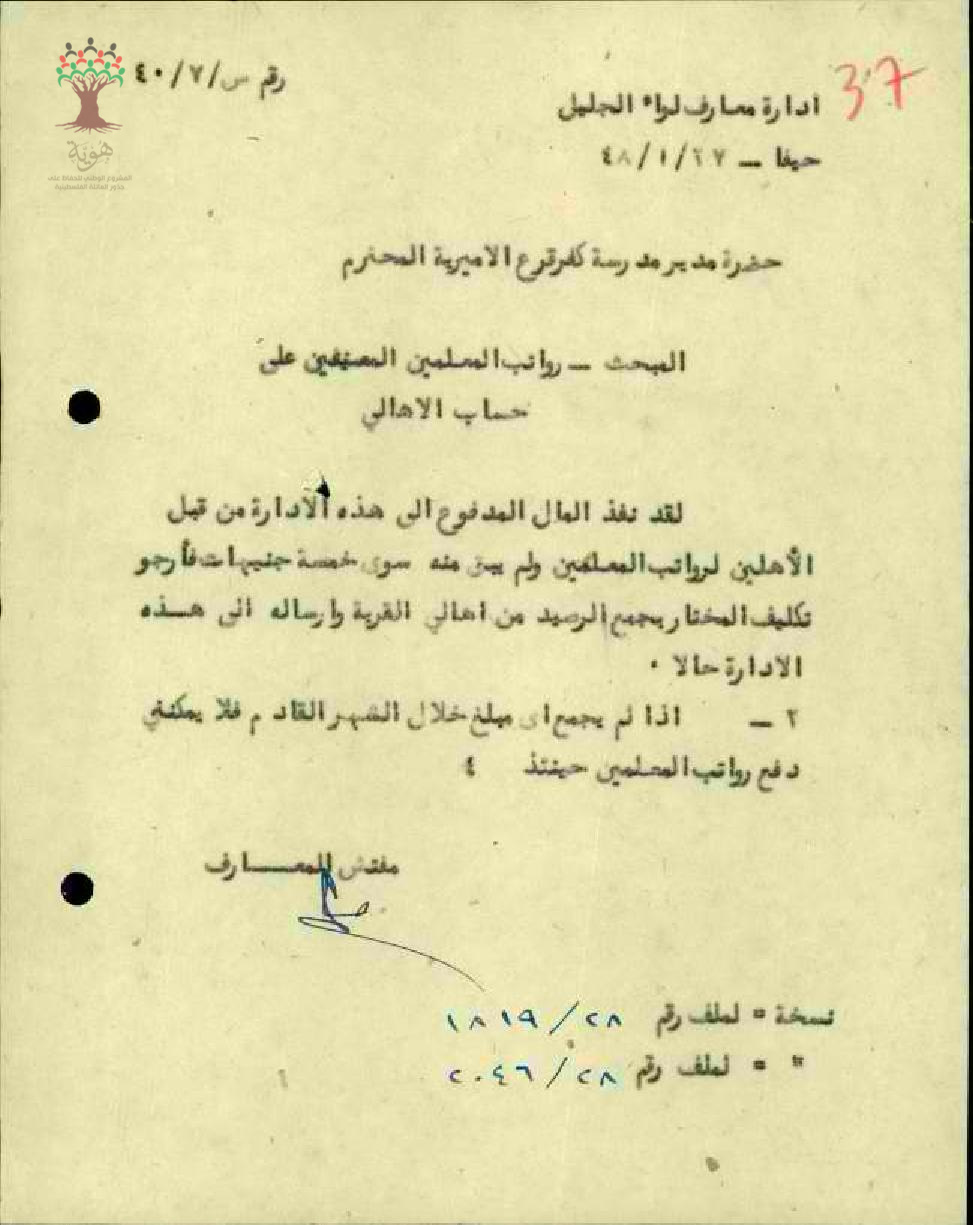 37
رقم س/٧/٤٠
ادارة معارف لواء الجليل
حيفا – ٢٧/١/٤٨
هُوِيَّة
المشروع الوطني للحفاظ على
جذور العائلة الفلسطينية
حضرة مدير مدرسة كفرقرع الاميرية المحترم
المبحث – رواتب المعلمين المعينين على
حساب الاهالي
لقد نفذ المال المدفوع الى هذه الادارة من قبل
الأهلين لرواتب المعلمين ولم يبق منه سوى خمسة جنيهات فأرجو
تكليف المختار بجمع الرصيد من اهالي القرية وارساله الى هـذه
الادارة حالا ٠
٢ – اذا لم يجمع اى مبلغ خلال الشهر القادم فلا يمكنني
دفع رواتب المعلمين حينئذ ٤
مفتش المعـــارف
نسخة = لملف رقم ١٨١٩/٢٨
" = لملف رقم ٢٠٤٦/٢٨